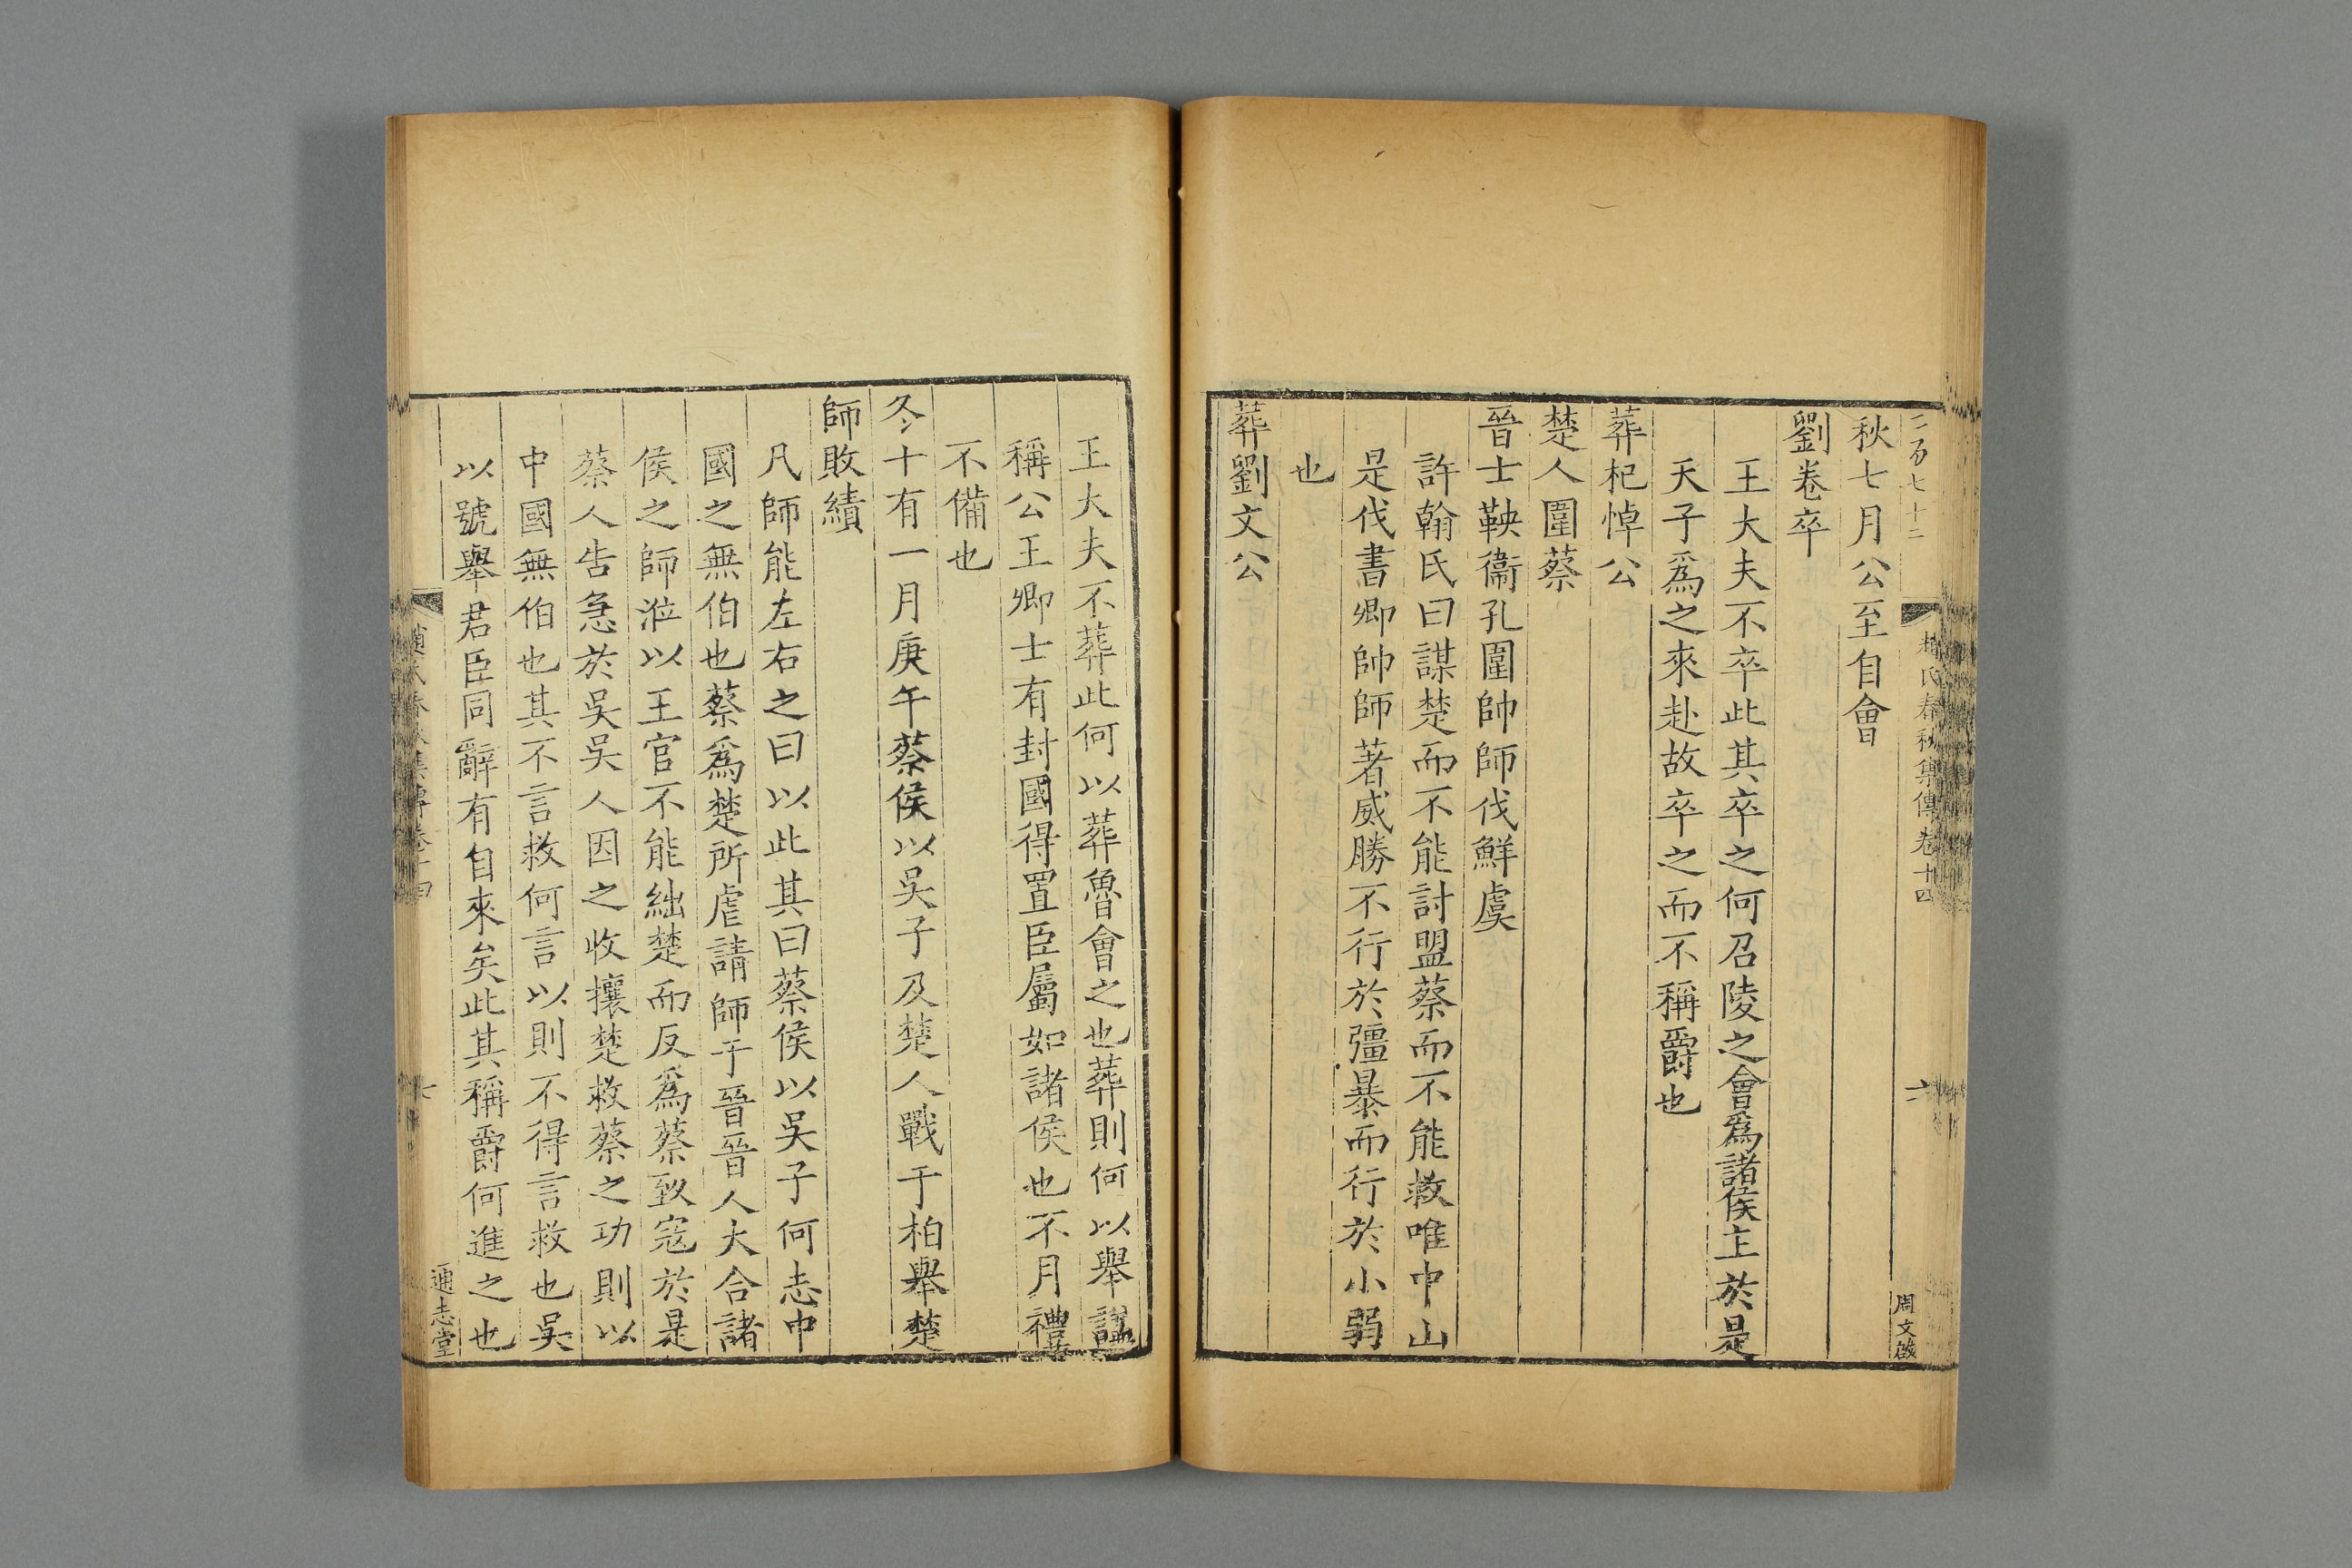 二百七十二 趙氏春秋集傳卷十四 六 周文啟
秋七月公至自會
劉卷卒
王大夫不卒此其卒之何召陵之會爲諸侯主於是
天子爲之來赴故卒之而不稱爵也
葬杞悼公
楚人圍蔡
晉士鞅衞孔圉帥師伐鮮虞
許翰氏曰謀楚而不能討盟蔡而不能救唯中山
是伐書卿帥師著威勝不行於彊暴而行於小弱
也
葬劉文公
王大夫不葬此何以葬魯會之也葬則何以舉諡
稱公王卿士有封國得置臣屬如諸侯也不月禮
不備也
冬十有一月庚午蔡侯以吳子及楚人戰于柏舉楚
師敗績
凡師能左右之曰以此其曰蔡侯以吳子何志中
國之無伯也蔡爲楚所虐請師于晉晉人大合諸
侯之師涖以王官不能絀楚而反爲蔡致寇於是
蔡人告急於吳吳人因之收攘楚救蔡之功則以
中國無伯也其不言救何言以則不得言救也吳
以號舉君臣同辭有自來矣此其稱爵何進之也
趙氏春秋集傳卷十四 七 通志堂